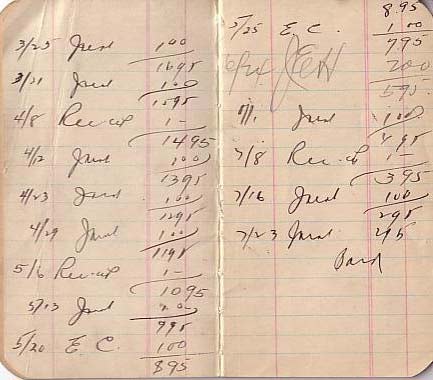 3/25 Jned 100
1695
3/31 Jned 100
1595
4/8 Rec-ed 1-
1495
4/12 Jned 100
1395
4/23 Jned 100
1295
4/29 Jned 100
1195
5/6 Rec-ed 1-
1095
5/13 Jned 200
995
5/20 E C. 100
895
8.95
5/25 E C. 1 00
795
6/24 JEH 200
595
100
495
7/8 Rec-ed 1-
395
7/16 Jned 100
295
7/23 Jned 295
Paid